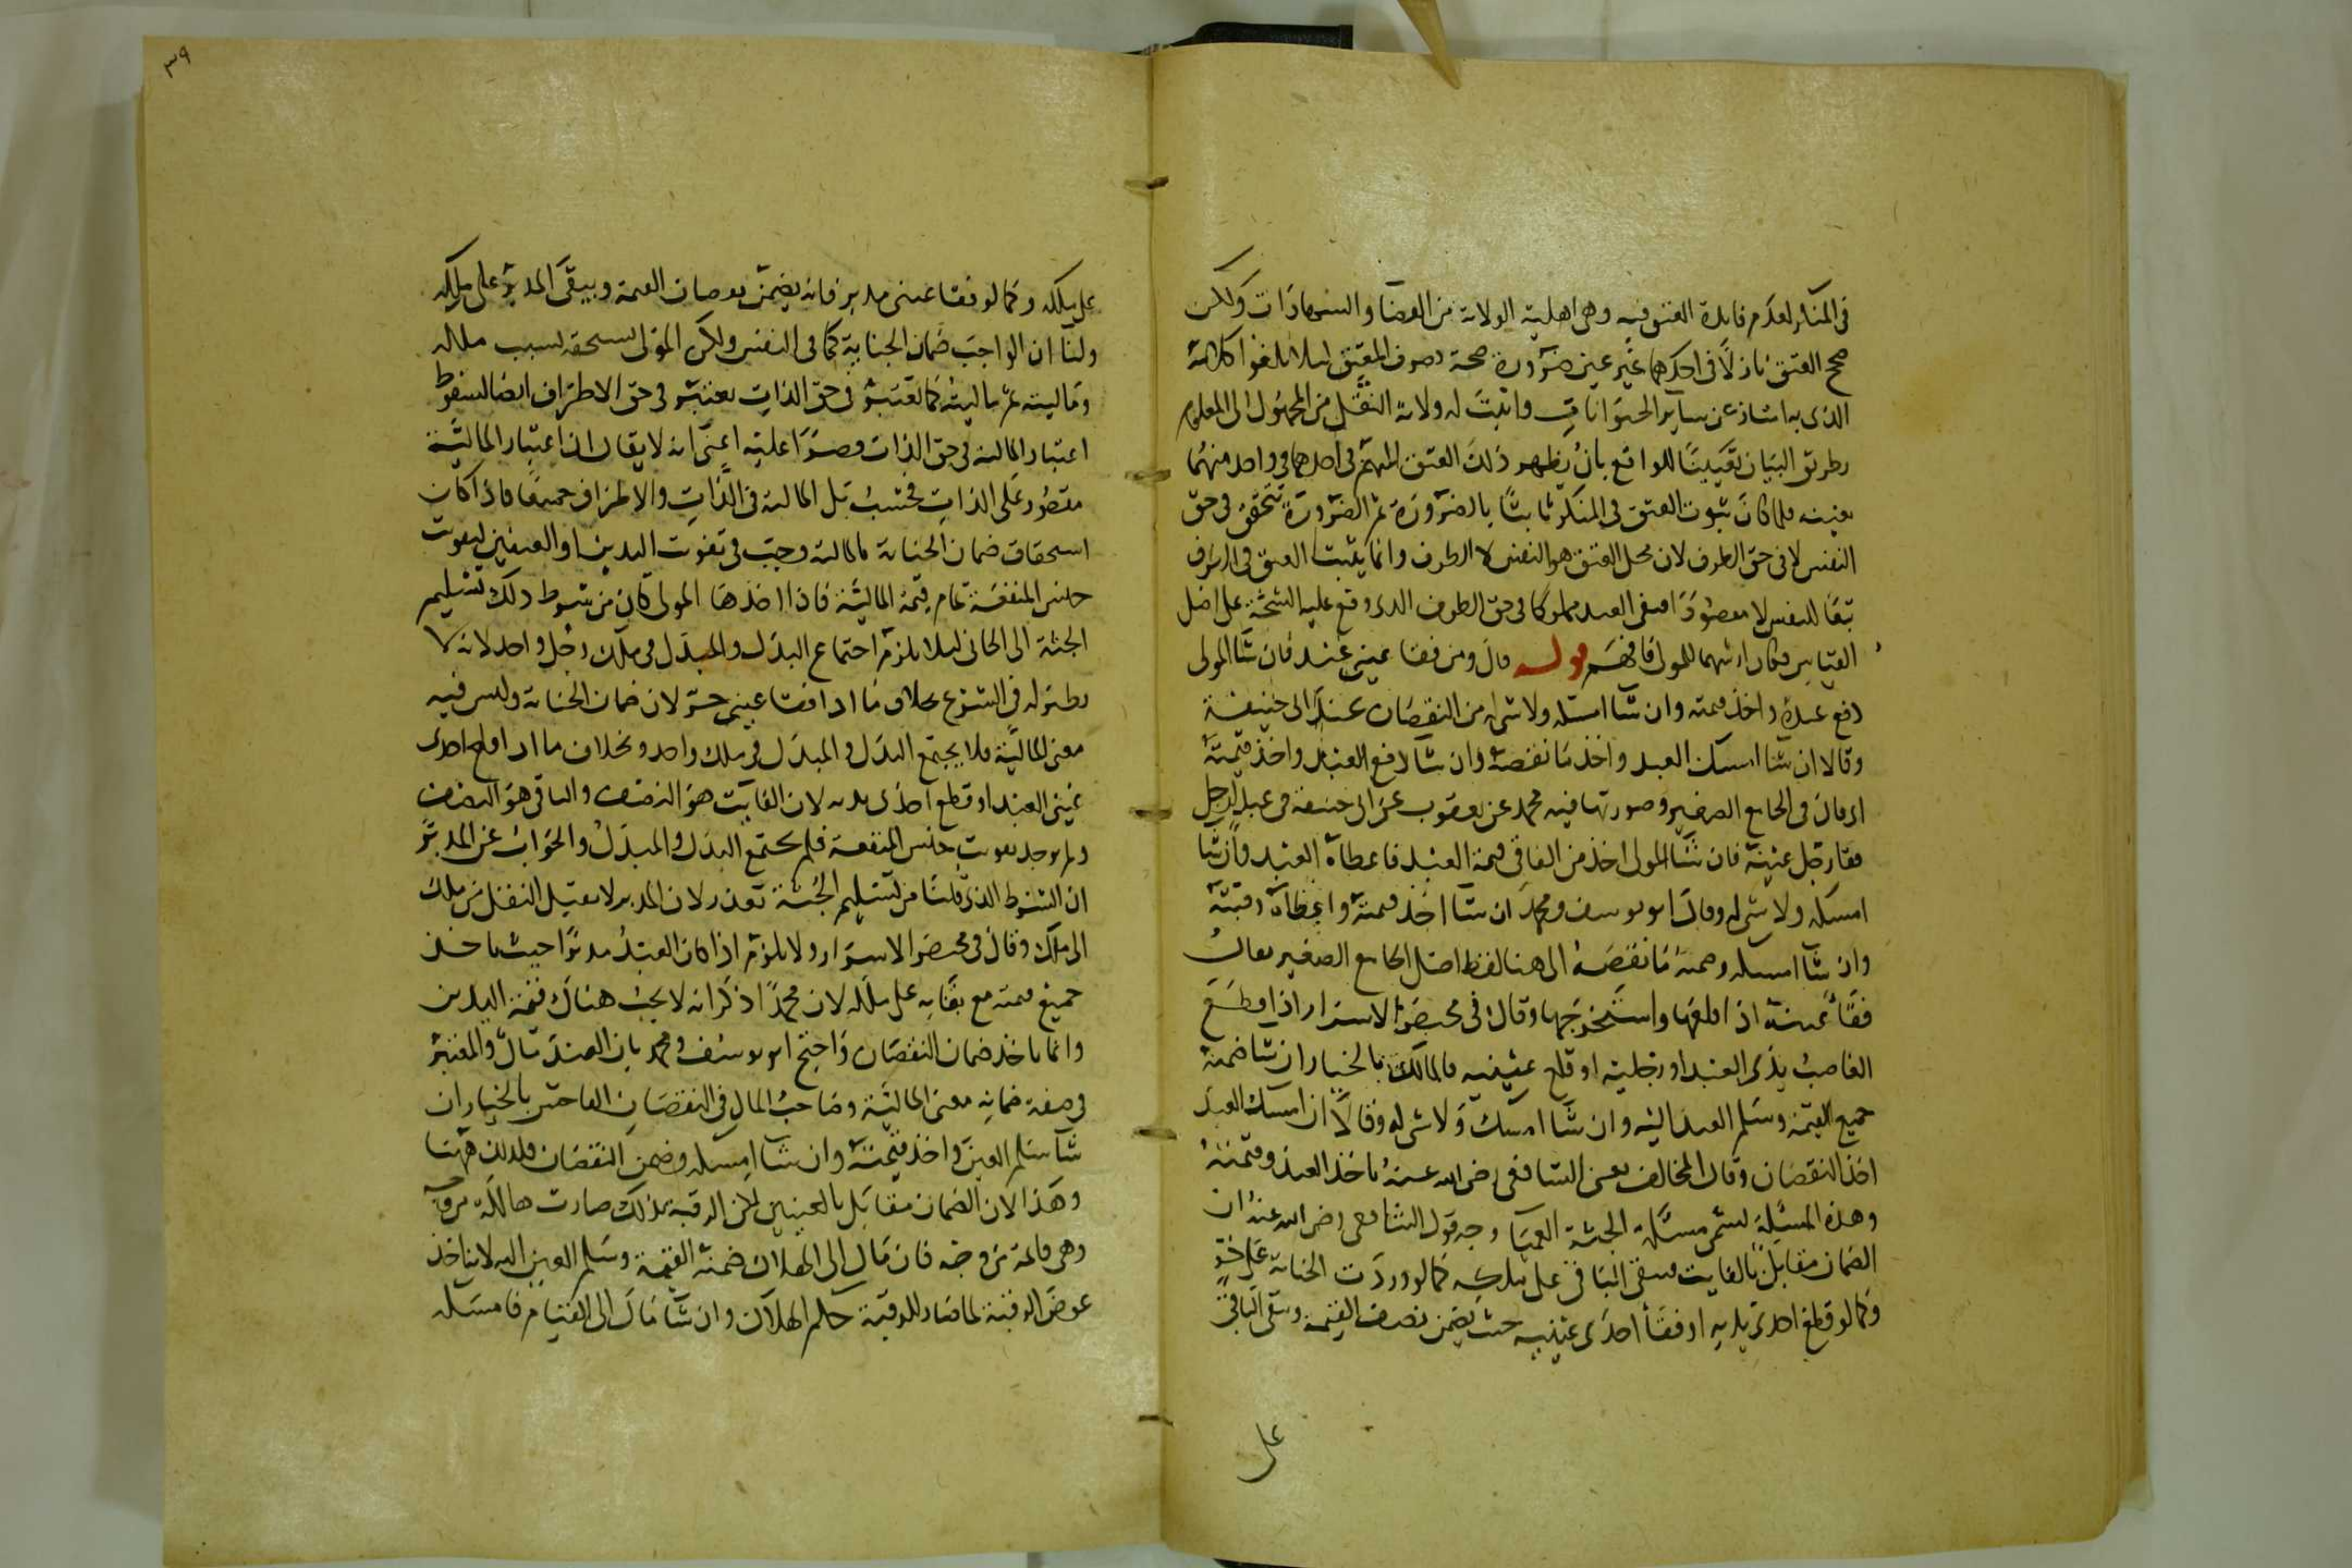 في المنكر لعدم فايدة العتق فيه وهي اهلية الولاية من القضا والشهادات ولكن
صح العتق نازلا في احدهما غير عين ضرورة صحة تصرف المعتق ليلا يلغوا كلامه
الذي به امتاز عن ساير الحيوانات واثبت له ولاية النقل من المجهول الى المعلوم
بطريق البيان تعيينا للواقع بان يظهر ذلك العتق المبهم في احدهما في واحد منهما
بعينه فلما كان ثبوت العتق في المنكر ثابتا بالضرورة ثم الضرورة تتحقق في حق
النفس لا في حق الطرف لان محل العتق هو النفس لا الطرف وانما يثبت العتق في الطرف
تبعا للنفس لا مقصودا فبقي العبد مملوكا في حق الطرف الذي وقع عليه الشجة على اصل
القياس فكان ارشهما للمولى فافهم قوله قال ومن فقا عيني عبد فان شا المولى
دفع عبده واخذ قيمته وان شا امسكه ولا شي له من النقصان عند ابي حنيفة
وقالا ان شا امسك العبد واخذ ما نقصه وان شا دفع العبد واخذ قيمته
اي قال في الجامع الصغير وصورتها فيه محمد عن يعقوب عن ابي حنيفة في عبد لرجل
فقا رجل عينيه فان شا المولى اخذ من الفاقي قيمة العبد فاعطاه العبد وان شا
امسكه ولا شي له وقال ابو يوسف ومحمد ان شا اخذ قيمته واعطاه رقبته
وان شا امسكه وضمنه ما نقصه الى هنا لفظ اصل الجامع الصغير يقال
فقأ عينه اذا قلعها واستخرجها وقال في مختصر الاسرار اذا قطع
الغاصب يدي العبد او رجليه او قلع عينيه فالمالك بالخيار ان شا ضمنه
جميع القيمة وسلم العبد اليه وان شا امسك ولا شي له وقالا ان امسك العبد
اخذ النقصان وقال المخالف يعني الشافعي رضي الله عنه ياخذ العبد وقيمته
وهذه المسئلة تسمى مسئلة الجثة العميا وجه قول الشافعي رضي الله عنه ان
الضمان مقابل بالفايت فبقي الباقي على ملكه كما لو وردت الجناية على حر
وكما لو قطع احدى يديه او فقأ احدى عينيه حيث يضمن نصف القيمة وبقي الباقي
على
٣٩
على ملكه وكما لو فقا عيني مدبر فانه يضمن نقصان القيمة ويبقى المدبر على ملكه
ولنا ان الواجب ضمان الجناية كما في النفس ولكن المولى استحقه بسبب ماله
وماليته ثم ماليته كما تعتبر في حق الذات تعتبر في حق الاطراف ايضا لسقوط
اعتبار المالية في حق الذات قصرا عليه اعني انه لا يقال ان اعتبار المالية
مقصور على الذات فحسب بل المالية في الذات والاطراف جميعا فاذا كان
استحقاق ضمان الجناية بالمالية وجب في تفويت اليدين او العينين لتفويت
جنس المنفعة تمام قيمة المالية فاذا اخذها المولى كان من شرط ذلك تسليم
الجثة الى الجاني ليلا يلزم اجتماع البدل والمبدل في ملك رجل واحد لانه لا
نظير له في الشرع بخلاف ما اذا فقا عيني حر لان ضمان الجناية وليس فيه
معنى المالية فلا يجتمع البدل والمبدل في ملك واحد وبخلاف ما اذا قلع احدى
عيني العبد او قطع احدى يديه لان الفايت هو النصف والباقي هو النصف
ولم يوجد تفويت جنس المنفعة فلم يجتمع البدل والمبدل والجواب عن المدبر
ان الشرط الذي قلنا من تسليم الجثة تعذر لان المدبر لا يقبل النقل من ملك
الى ملك وقال في مختصر الاسرار ولا يلزم اذا كان العبد مدبرا حيث ياخذ
جميع قيمته مع بقايه على ملكه لان محمدا ذكر انه لا يجب هناك قيمة اليدين
وانما ياخذ ضمان النقصان واحتج ابو يوسف ومحمد بان العبد مال والمعتبر
في صفة ضمانه معنى المالية وصاحب المال في النقصان الفاحش بالخيار ان
شا سلم العين واخذ قيمته وان شا امسكه وضمن النقصان فلذلك ههنا
وهذا لان الضمان مقابل بالعينين لكن الرقبة بذلك صارت هالكة من وجه
وهي قايمة من وجه فان مال الى الهلاك ضمنه القيمة وسلم العين اليه لانه ياخذ
عوض الرقبة لما صار للرقبة حكم الهلاك وان شا مال الى القيام فامسكه